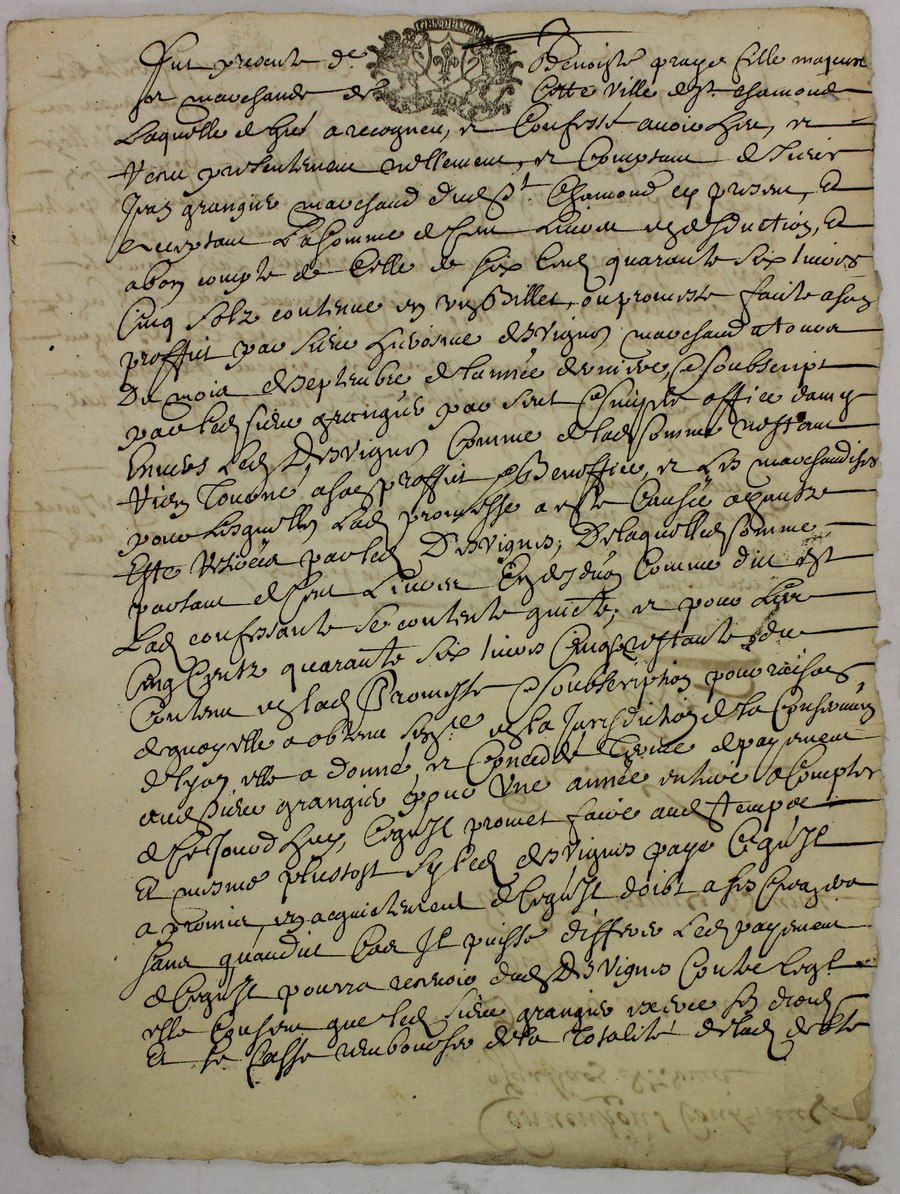 GEN DE LYON
Fut presente de^e Benoiste praye fille majeure
et marchande de Cette ville de S^t chamond
Laquelle de gre a recogneu, et Confessé avoir heu, et
receu presentement reellement, et Comptant de Sieur
Jean grangier marchand dud S^t Chamond cy present, et
acceptant La somme de Cent Livres en deduction, et
a bon compte de Celle de Six Centz quarante six livres
Cinq solz contenue en un Billet, ou promesse faite a son
proffict par sieur hierosme desvignes marchand
Du mois de septembre de l'année derniere, & soubscript
par led sieur grangier par
Envers Led Desvignes Comme de lad somme n'estant
rien Tourné a son proffict & Beneffice, et Les marchandises
pour Lesquelles Lad promesse a esté Causée ayantz
Esté par led Desvignes, De laquelle somme
partant de Cent Livres En deduon Comme dit est
Lad confessante se contente quicte, et pour Les
Cinq Centz quarante six livres Cinq s restante du
Contenu en lad Promesse & soubscription pour raison
de quoy elle a obtenu sen^ce en la Jurisdiction de la Conservation
de lyon elle a donné, et Concedé Terme de payement
aud sieur grangier pour une année entiere a Compter
de Ce Jourd huy, Ce qu'Il promet faire aud temps
Et mesme plustost sy led desvignes paye Ce qu'Il
a promis, en acquictement de Ce qu'Il doibt a ses Creanciers
sans quaudit Cas Il puisse differer Led payement
de Ce qu'Il pourra recevoir dud Desvignes Contre Lequel
elle Consent que led sieur grangier exerce ses droits
Et se fasse rembourser de la Totalité de lad debte